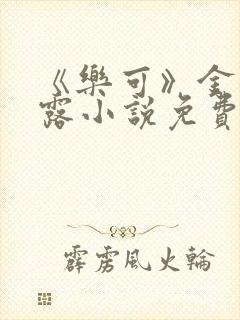 《樂可》金
露小說免費
霹靂風火輪